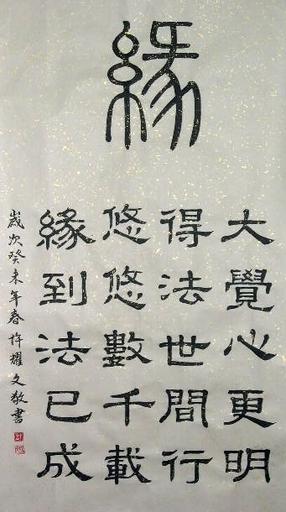 緣
大覺心更明
得法世間行
悠悠數千載
緣到法已成
歲次癸未年春許耀文敬書